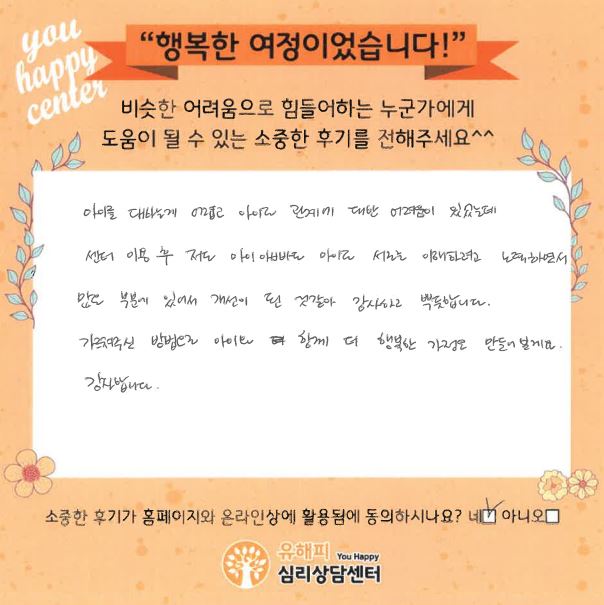 you
happy
center
“행복한 여정이었습니다!”
비슷한 어려움으로 힘들어하는 누군가에게
도움이 될 수 있는 소중한 후기를 전해주세요^^
아이를 대하는게 어렵고 아이와 관계에 대한 어려움이 있었는데
센터 이용 후 저도 아이아빠도 아이도 서로를 이해하려고 노력하면서
많은 부분에 있어서 개선이 된 것같아 감사하고 뿌듯합니다.
가르쳐주신 방법으로 아이와 함께 더 행복한 가정을 만들어 볼게요.
감사합니다.
소중한 후기가 홈페이지와 온라인상에 활용됨에 동의하시나요? 네 아니오
유해피 You Happy
심리상담센터